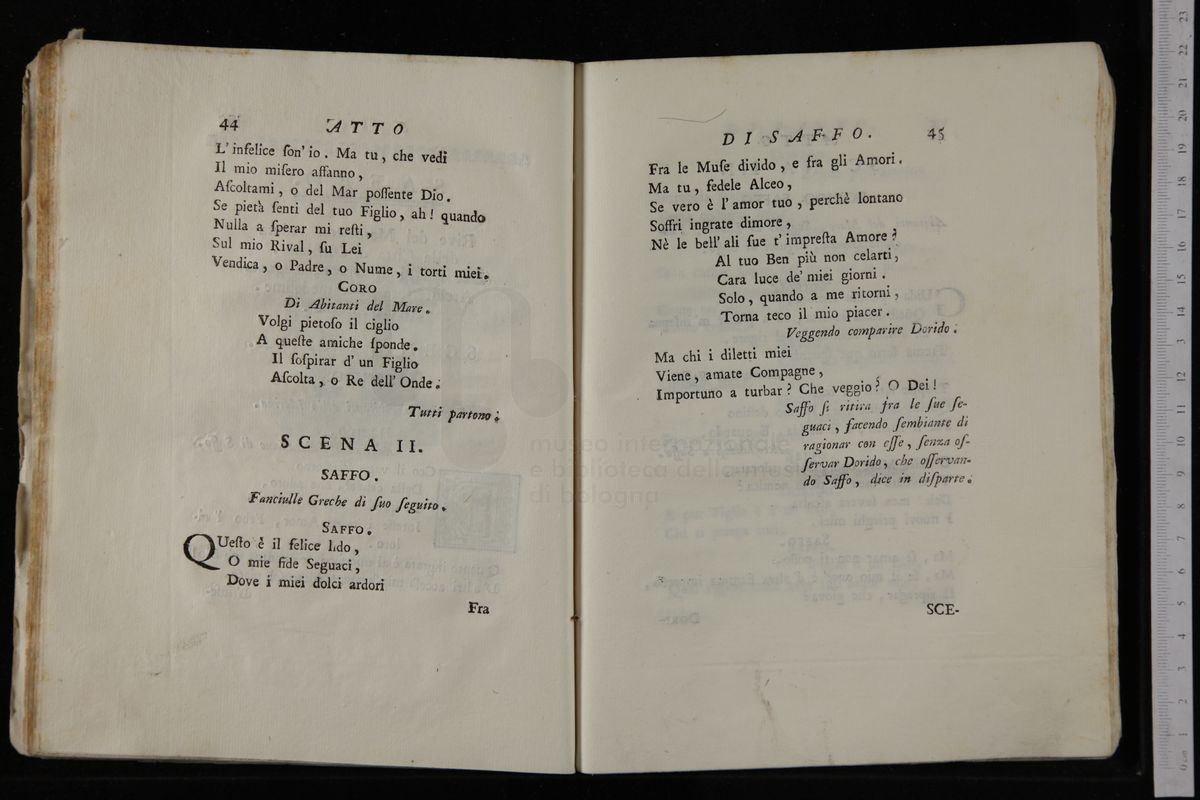 44 ATTO
L'infelice ſon' io. Ma tu, che vedi
Il mio miſero affanno,
Aſcoltami, o del Mar poſſente Dio.
Se pietà ſenti del tuo Figlio, ah! quando
Nulla a ſperar mi reſti,
Sul mio Rival, ſu Lei
Vendica, o Padre, o Nume, i torti miei.
CORO
Di Abitanti del Mare.
Volgi pietoſo il ciglio
A queſte amiche ſponde.
Il ſoſpirar d' un Figlio
Aſcolta, o Re dell' Onde.
Tutti partono.
SCENA II.
SAFFO.
Fanciulle Greche di ſuo ſeguito.
SAFFO.
QUeſto è il felice lido,
O mie fide Seguaci,
Dove i miei dolci ardori
Fra
DI SAFFO. 45
Fra le Muſe divido, e fra gli Amori.
Ma tu, fedele Alceo,
Se vero è l' amor tuo, perchè lontano
Soffri ingrate dimore,
Nè le bell' ali ſue t' impreſta Amore?
Al tuo Ben più non celarti,
Cara luce de' miei giorni.
Solo, quando a me ritorni,
Torna teco il mio piacer.
Veggendo comparire Dorido.
Ma chi i diletti miei
Viene, amate Compagne,
Importuno a turbar? Che veggio? O Dei!
Saffo ſi ritira fra le ſue ſe-
guaci, facendo ſembiante di
ragionar con eſſe, ſenza oſ-
ſervar Dorido, che oſſervan-
do Saffo, dice in diſparte.
SCE-
museo internazionale
e biblioteca della musica
di bologna